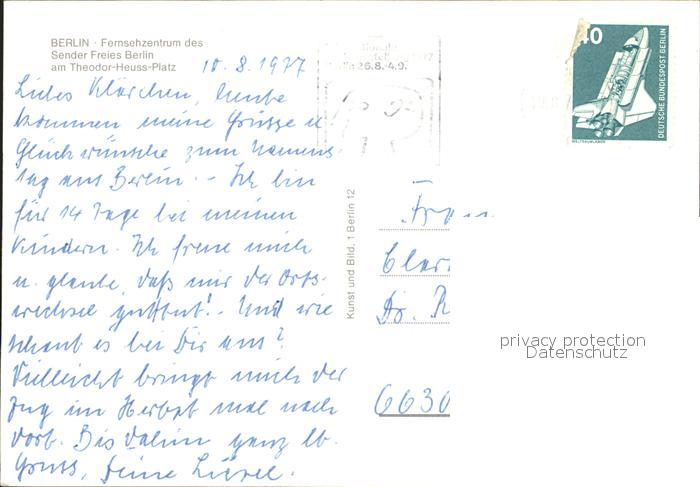 BERLIN · Fernsehzentrum des
Sender Freies Berlin
am Theodor-Heuss-Platz
10.8.1977
Liebes Klärchen, heute
kommen meine Grüsse u.
Glückwünsche zum Namens-
tag aus Berlin. - Ich bin
für 14 Tage bei meinen
Kindern. Ich freue mich
u. glaube, daß mir der Orts-
wechsel guttut! - Und wie
schaut es bei Dir aus?
Vielleicht bringt mich der
Zug im Herbst mal nach
dort. Bis dahin ganz lb.
Gruss, Deine Liesel.
Kunst und Bild, 1 Berlin 12
26.8.-4.9.
40
DEUTSCHE BUNDESPOST BERLIN
WELTRAUMLABOR
Frau
Clar
Dr. R
6630
privacy protection
Datenschutz